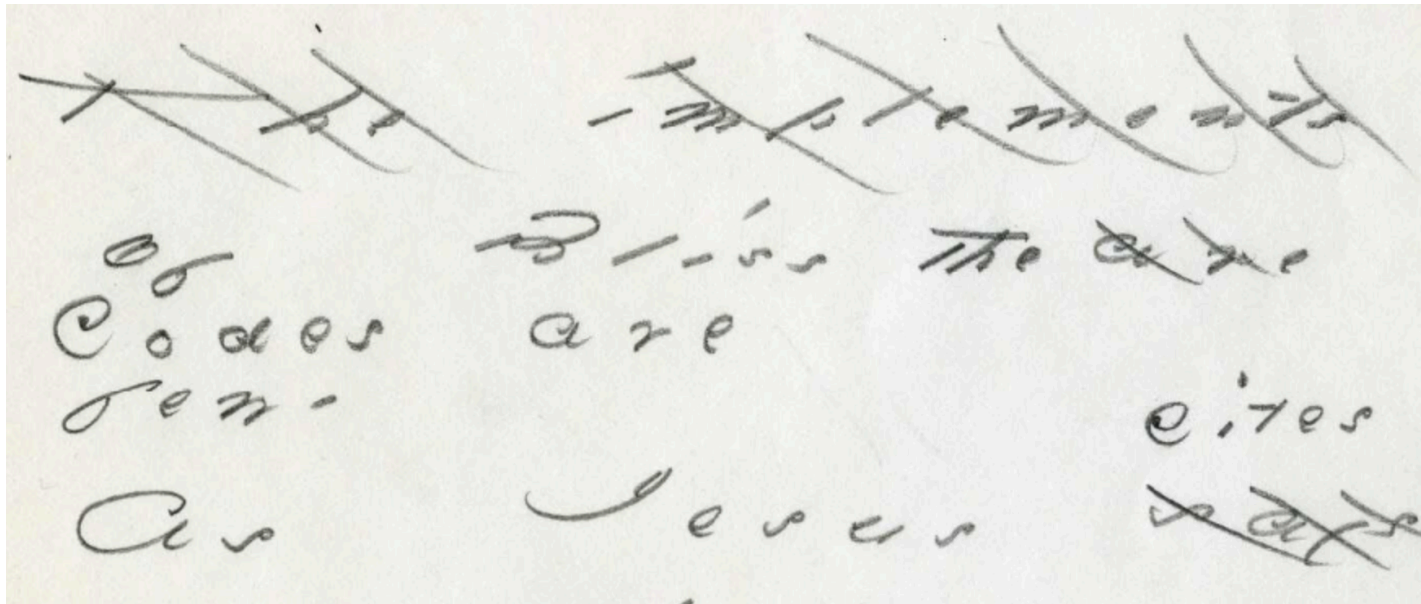 The implements
Of Bliss The are
Codes are
few -
cites
As Jesus says